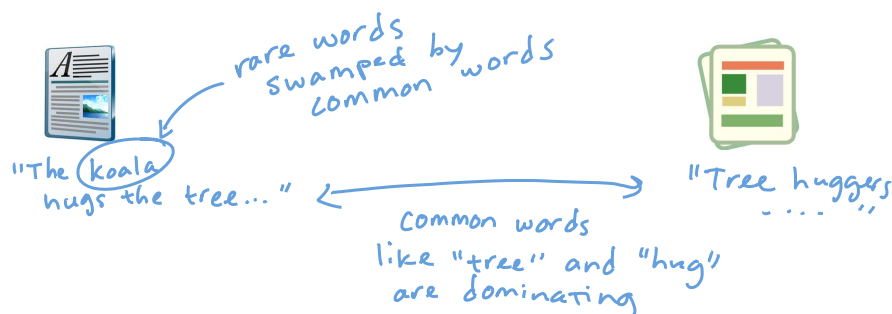 rare words
swamped by
common words
A
"The koala
hugs the tree..."
"Tree huggers
....."
Common words
like "tree" and "hug"
are dominating